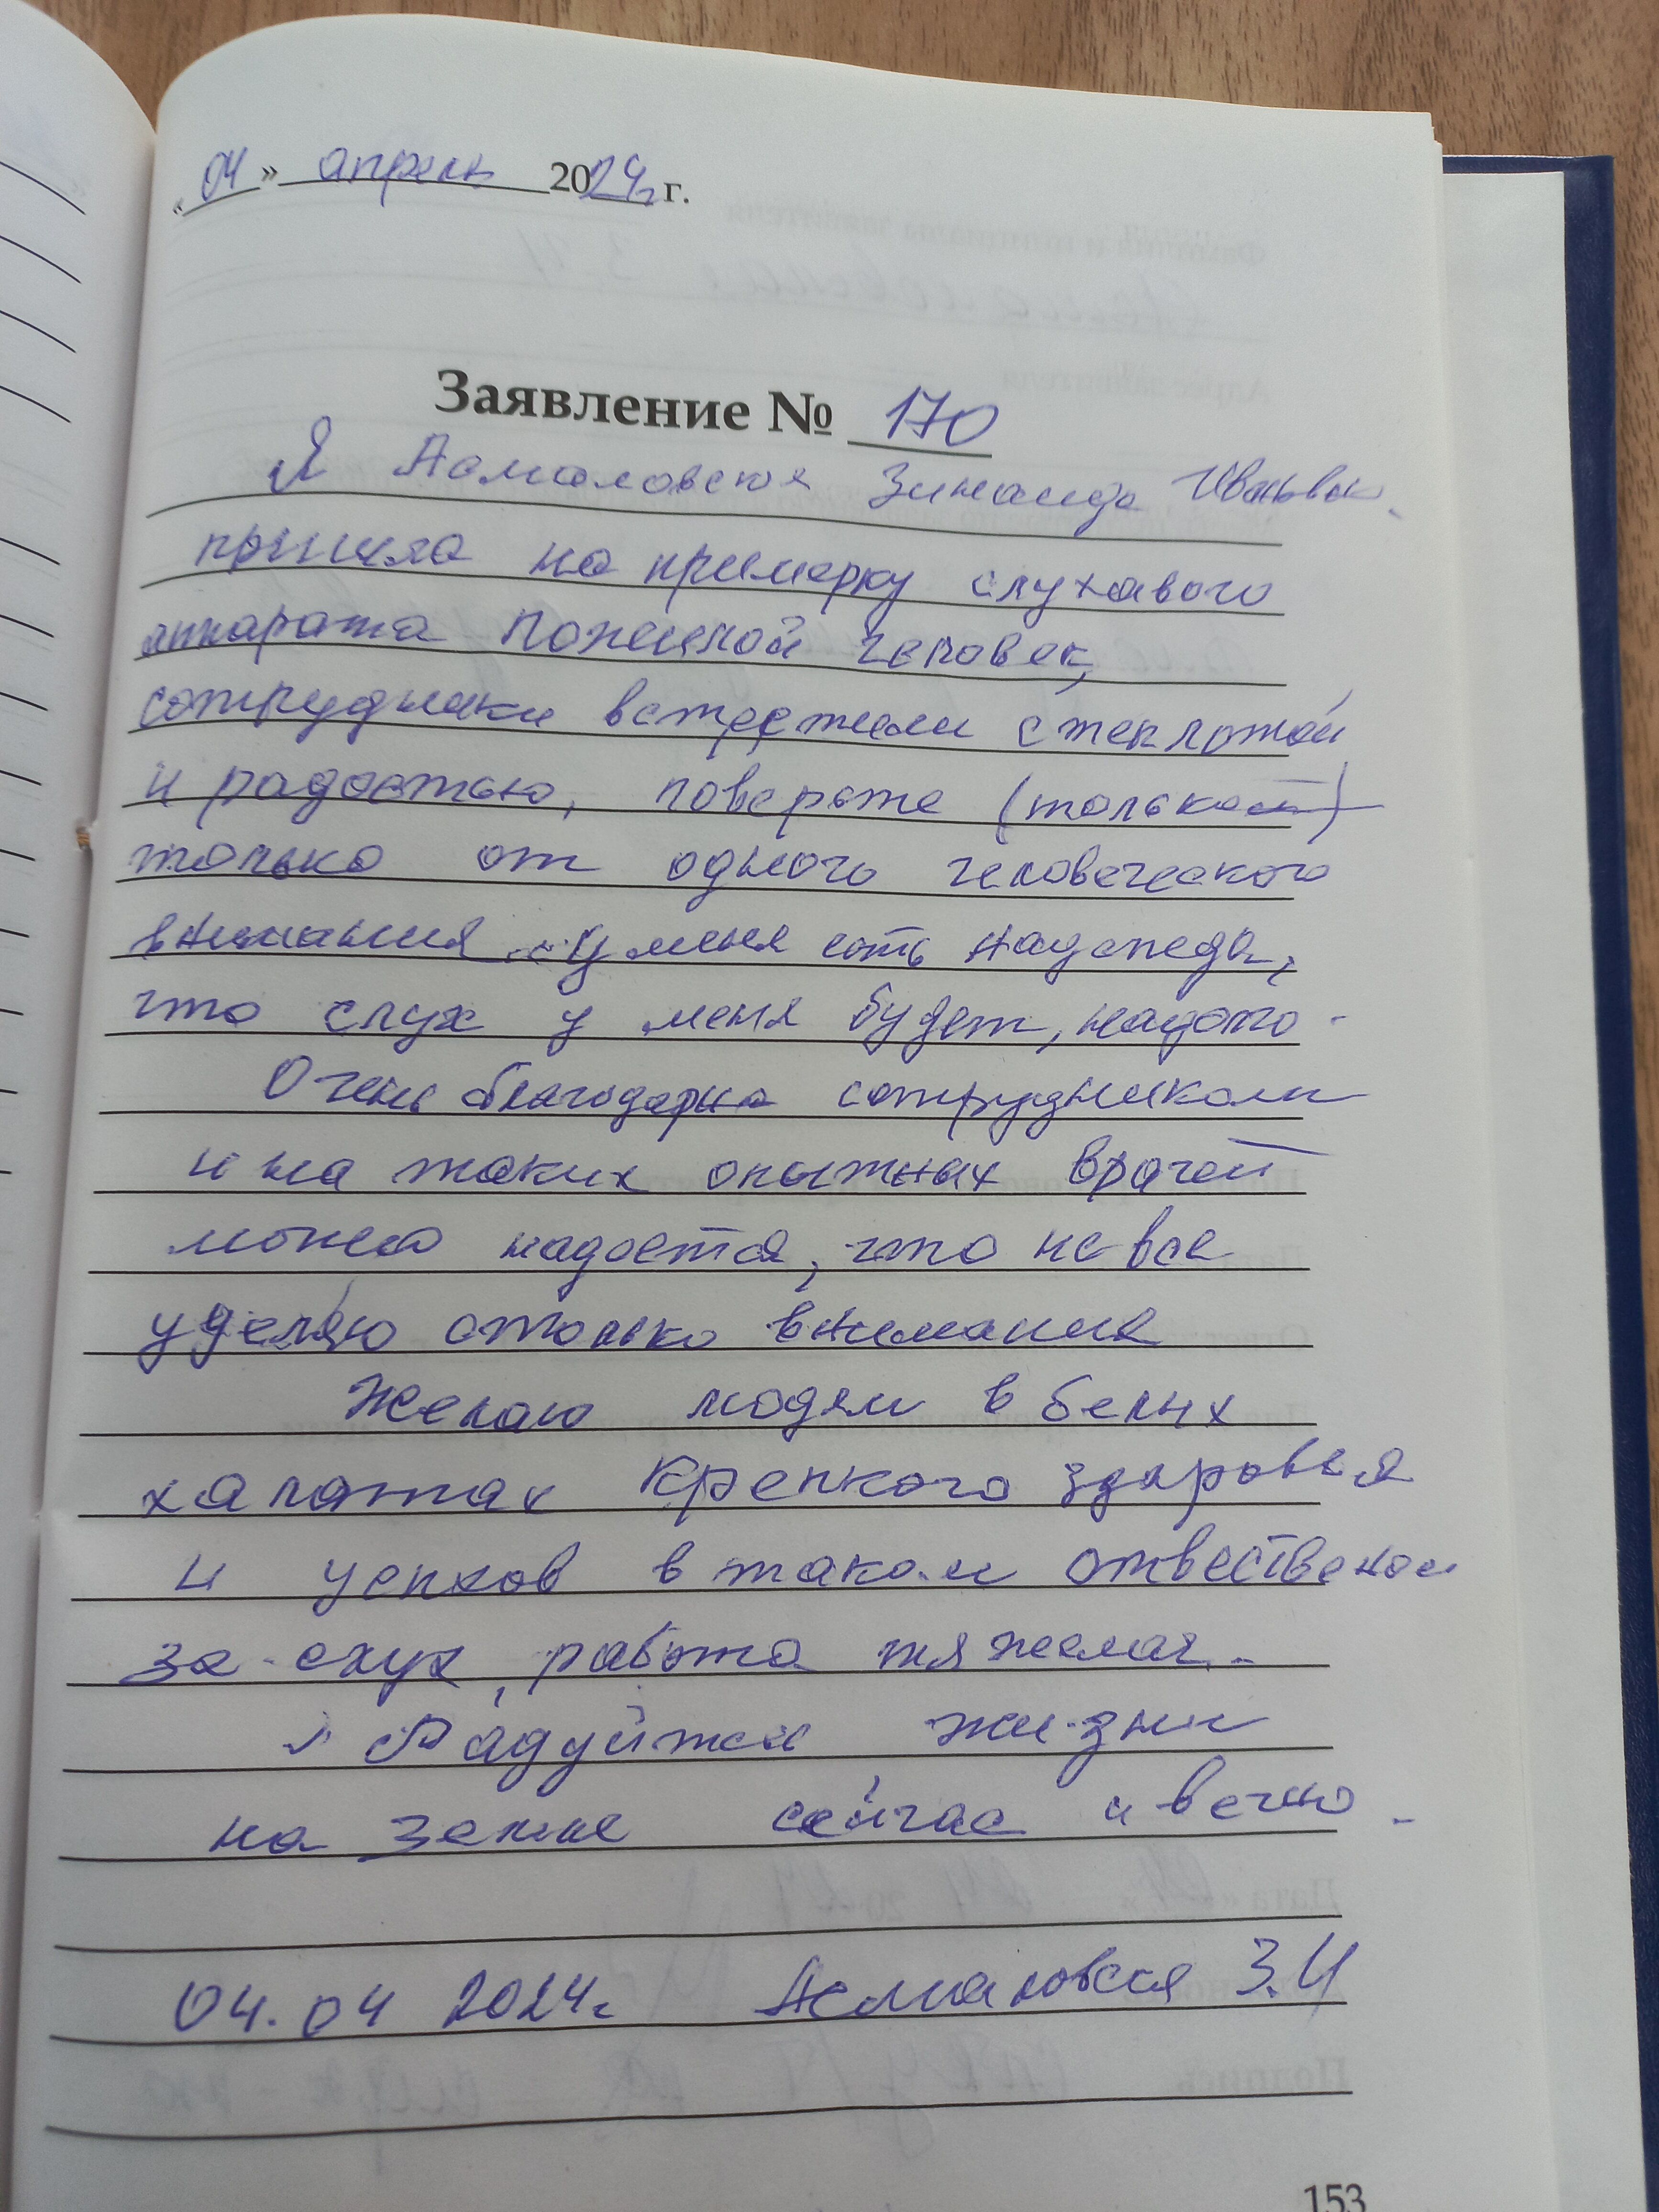 « 04 » апрель 2024г. г.
Заявление № 170
Я Асмаловская Зинаида
пришла на примерку слухавого
аппарата пожилой человек,
сотрудники встретили с теплотой
и радостью, поверьте (только
только от одного человеческого
внимания у меня есть надежда,
что слух у меня будет,
Очень благодарна сотрудникам
и на таких опытных врачей
можно надоется, что не все
уделяю столько внимания
Желаю людям в белых
халатах крепкого здоровья
и успхов в таком отвественом
за слух, работа тяжелая.
Радуйтеся жизни
на земле сейчас и вечно.
04.04 2024г. Асмаловская З.И
153